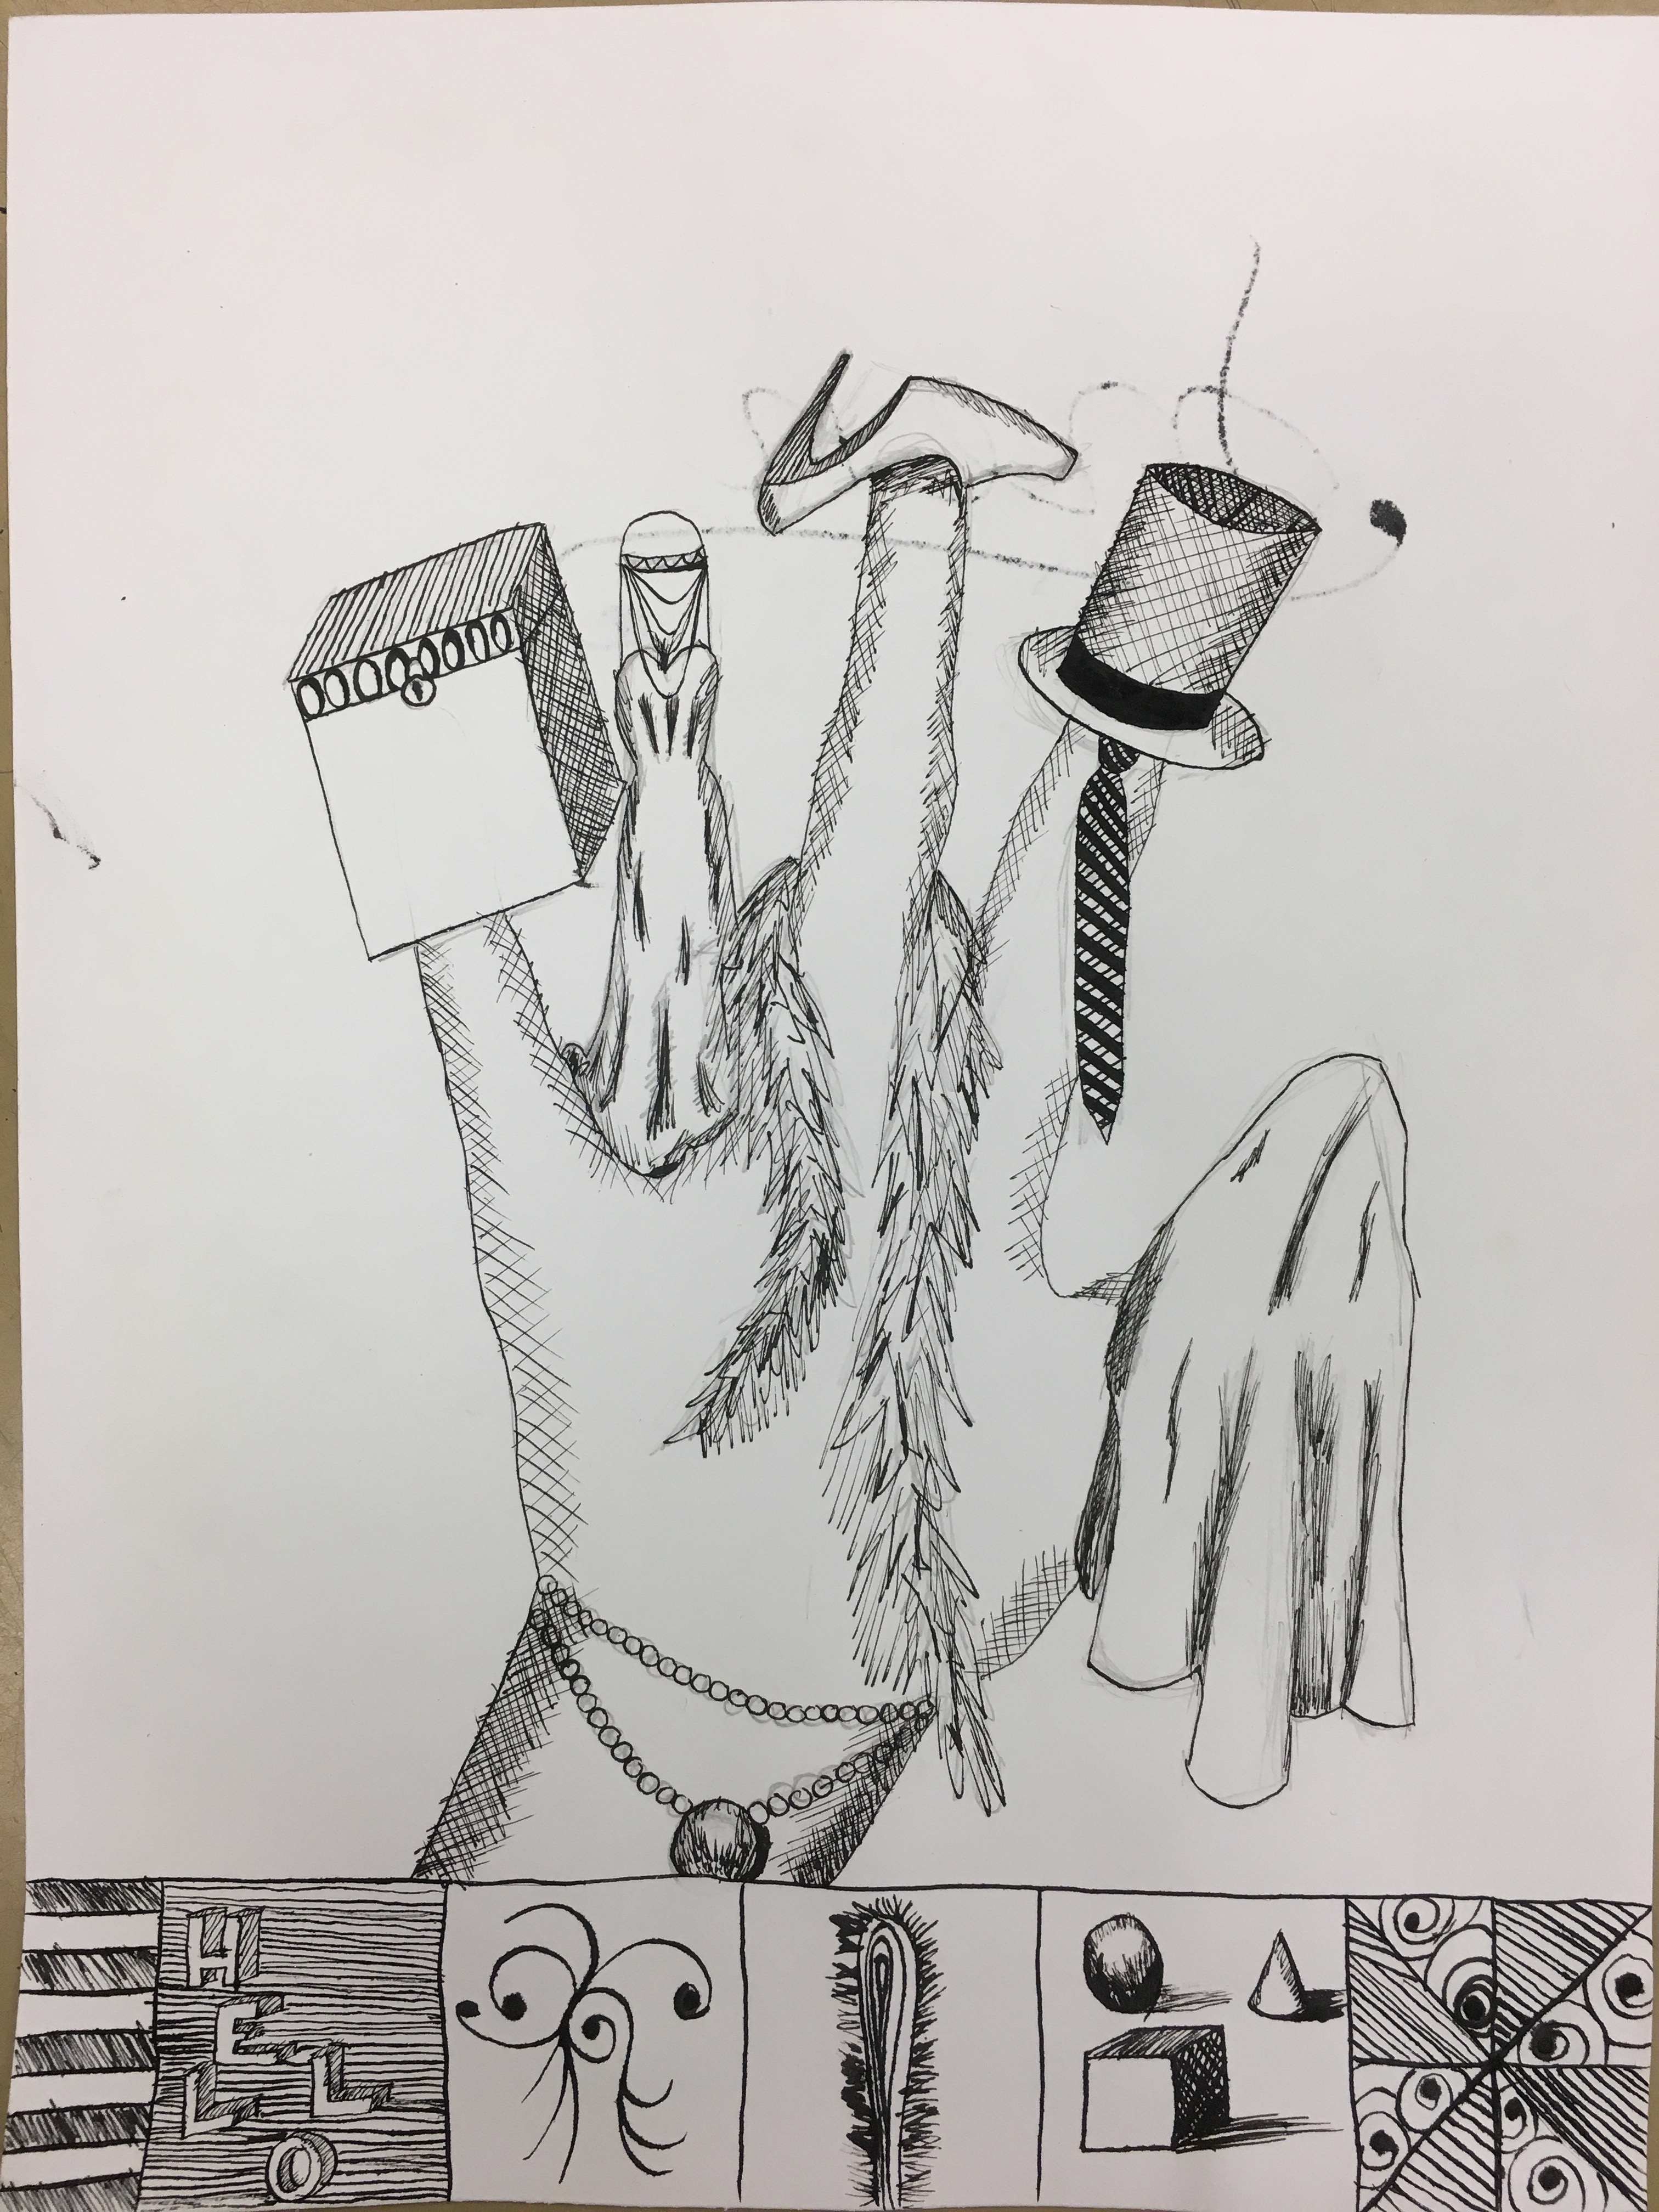 H
E
L L
O